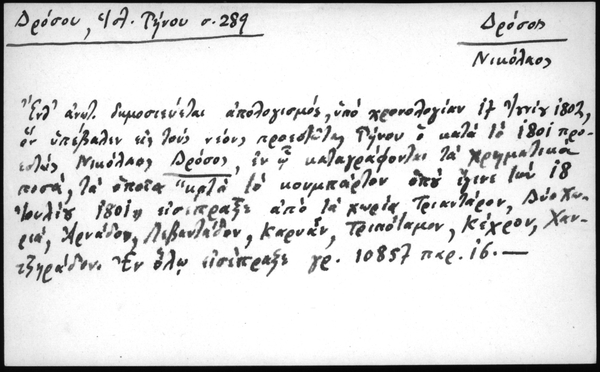 Δρόσου, Ἱστ. Τήνου σ. 289
Δρόσος
Νικόλαος
Ἐνθ' ἀνωτ. δημοσιεύεται ἀπολογισμός, ὑπὸ χρονολογίαν 17 Ἰουνίου 1802,
ὃν ὑπέβαλεν εἰς τοὺς νέους προεστῶτας Τήνου ὁ κατὰ τὸ 1801 προ-
εστὼς Νικόλαος Δρόσος, ἐν ᾧ καταγράφονται τὰ χρηματικὰ
ποσά, τὰ ὁποῖα "κατὰ τὸ κουμπάρτον ὁποῦ ἔγινε τῶν 18
Ἰουλίου 1801" εἰσέπραξε ἀπὸ τὰ χωρία Τριαντάρον, Δύο Χω-
ριά, Ἀρνάδον, Λεβαντάδον, Καρυάν, Τριπόταμον, Κέχρον, Χαν-
τζηράδον. Ἐν ὅλῳ εἰσέπραξε γρ. 10857 παρ. 16.—